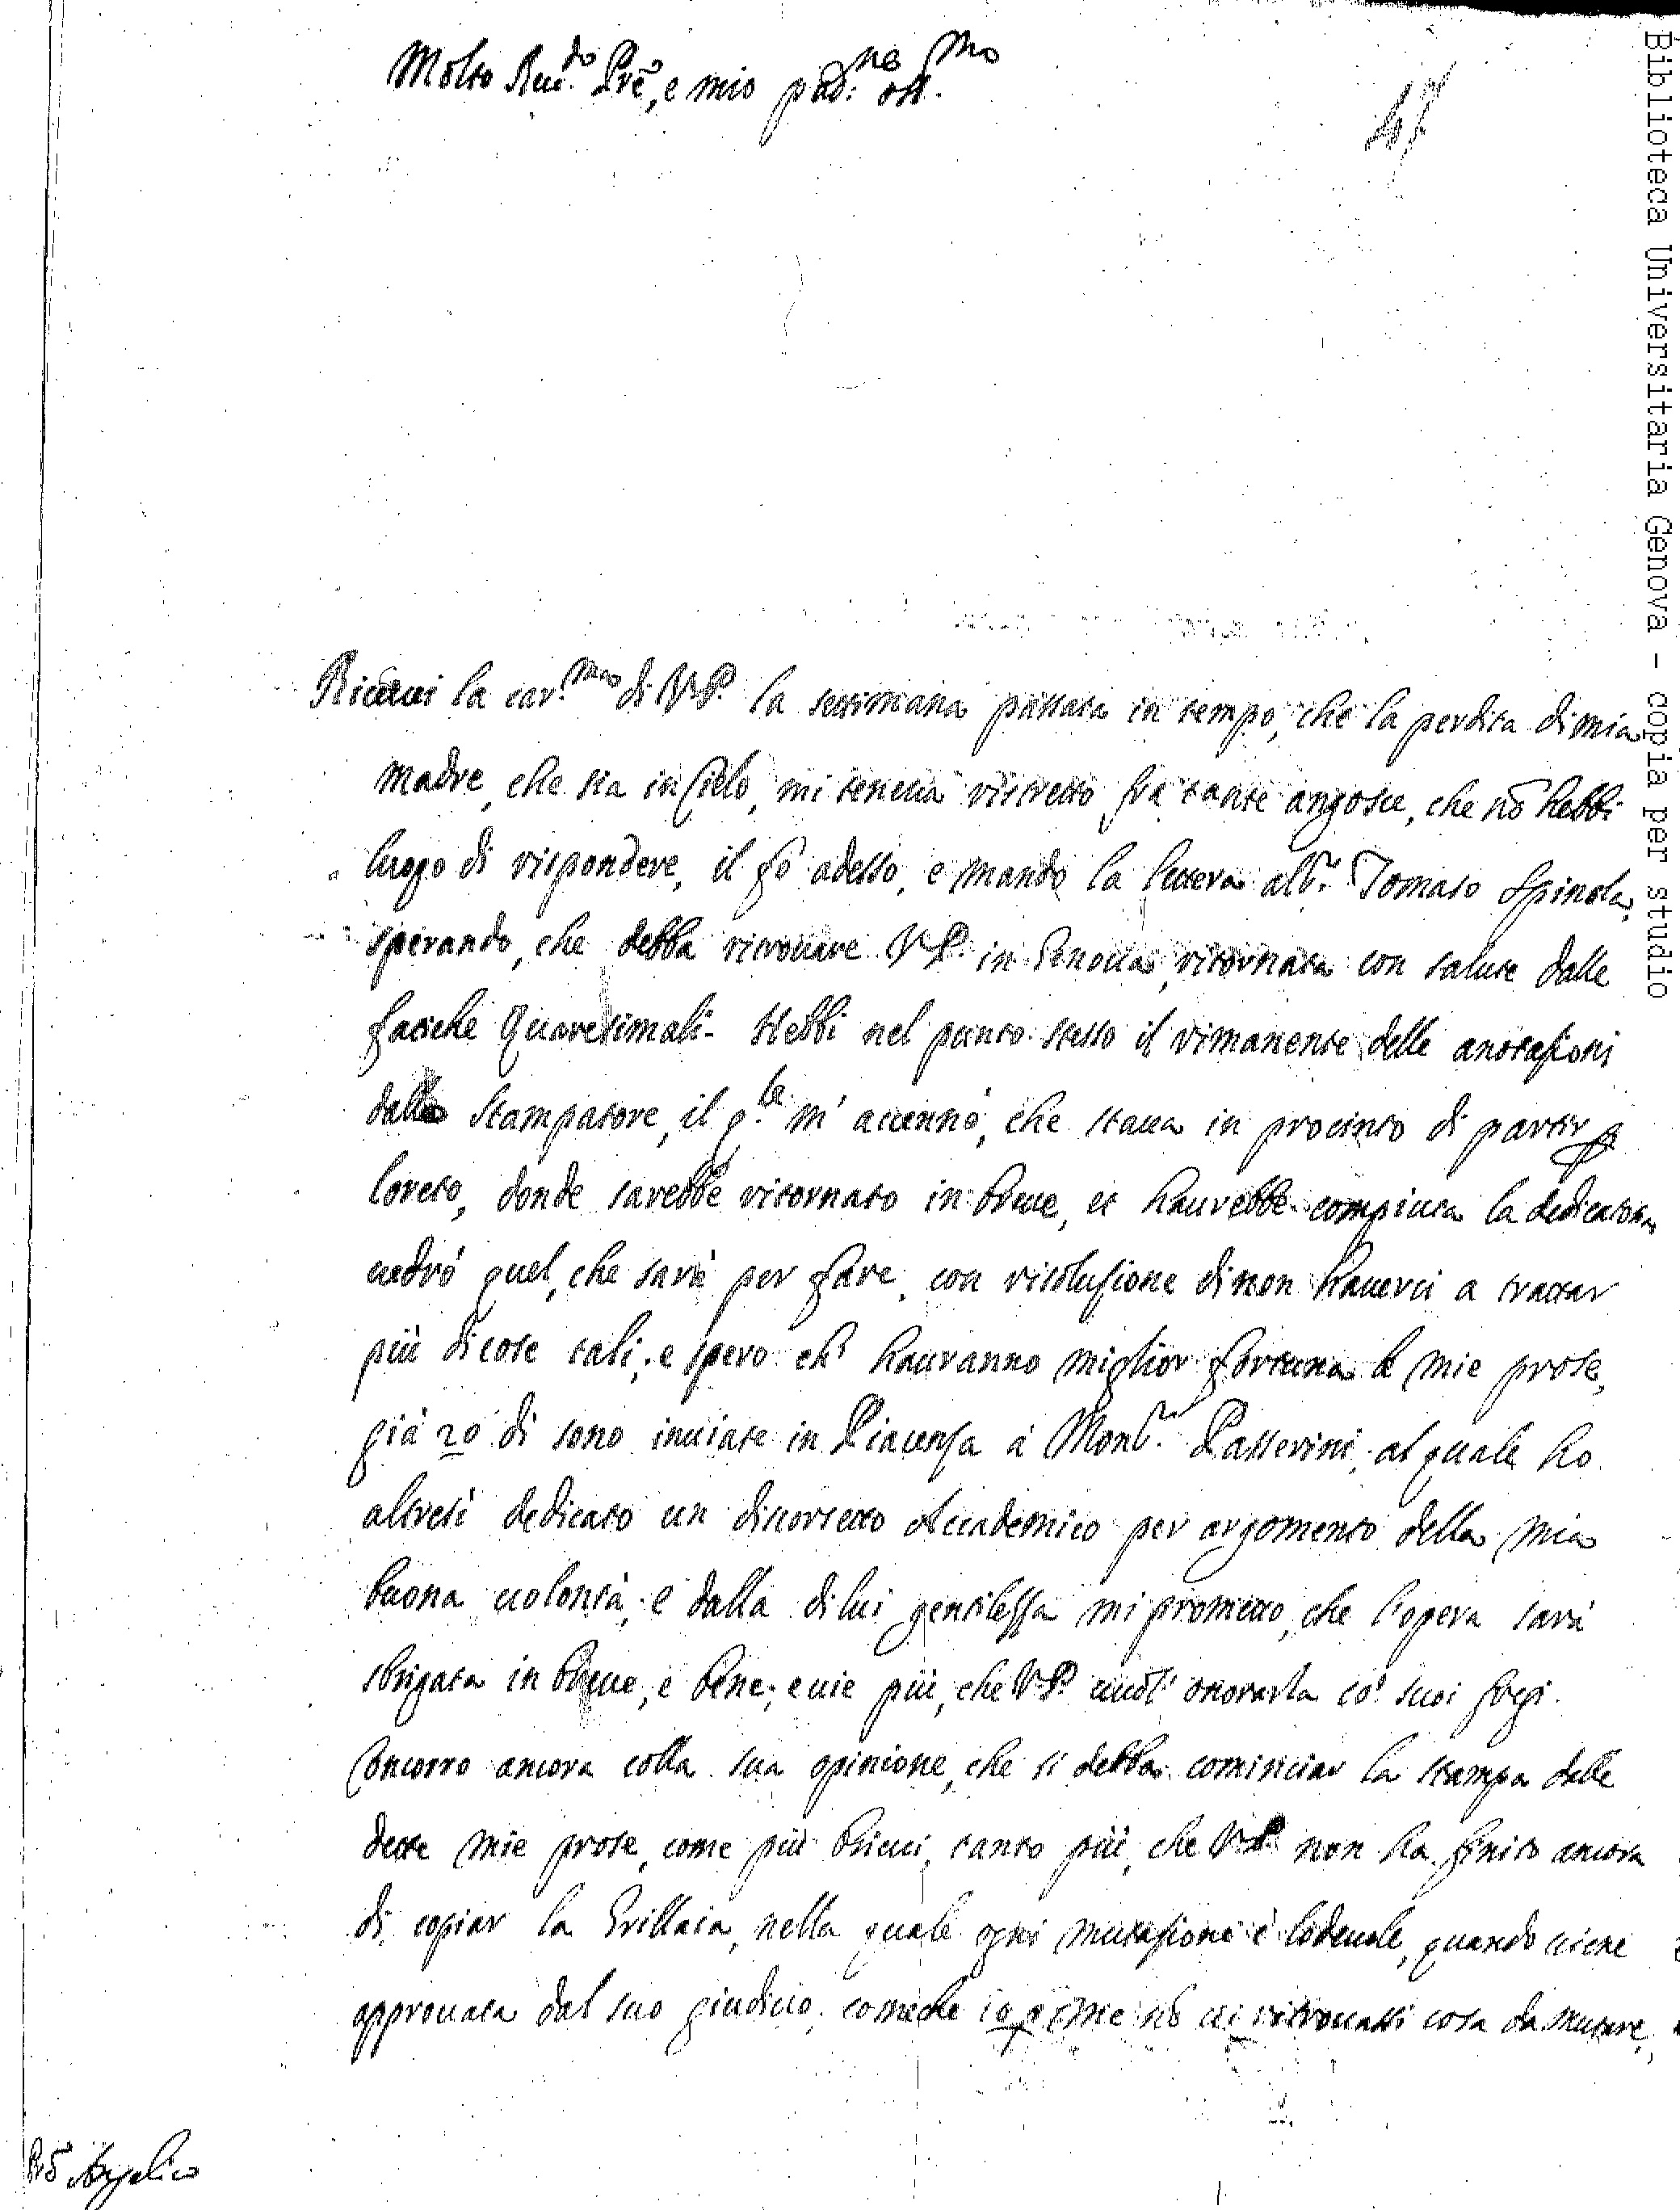 Molto Reu.do Pre, e mio pad:ne oss.mo
47
Riceuei la car.ma di V.P. la settimana passata in tempo, che la perdita di mia
madre, che sia in Cielo, mi teneua ristretto fra tante angosce, che nõ hebbi
luogo di rispondere, il fò adesso, e mando la lettera al S.r Tomaso Spinola,
sperando, che debba ritrouare V.P. in Genoua, ritornata con salute dalle
fatiche Quaresimali. Hebbi nel punto stesso il rimanente delle anotazioni
dallo Stampatore, il q.le m'accennò, che staua in procinto di partir p
loreto, donde sarebbe ritornato in breue, et haurebbe compiuta la dedicatoria
uedrò quel, che sarà per fare, con risoluzione di non hauerci a trattar
più di cose tali; e spero ch' hauranno miglior fortuna le mie prose,
già 20 dì sono inuiate in Piacenza à Mons.r Passerini, al quale ho
altresì dedicato un discorsetto Accademico per argomento della mia
buona uolontà; e dalla di lui gentilezza mi prometto, che l'opera sarà
sbrigata in breue, e bene; e uie più, che V.P. uuol' onorarla co' suoi fregi.
Concorro ancora colla sua opinione, che si debba cominciar la stampa dalle
dette mie prose, come più breui, tanto più, che V.P. non ha finito ancora
di copiar la Grillaia, nella quale ogni mutazione è lodeuole, quando uiene
approuata dal suo giudicio, comeche io p me nõ ui ritrouassi cosa da mutare,
Angelico
Biblioteca Universitaria Genova - copia per studio